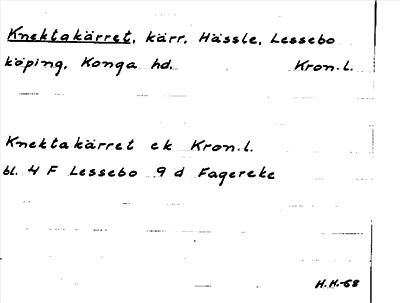 Knektakärret, kärr, Hässle, Lessebo
köping, Konga hd. Kron.l.
Knektakärret ek Kron.l.
bl. 4 F Lessebo 9 d Fagereke
H.H.-68